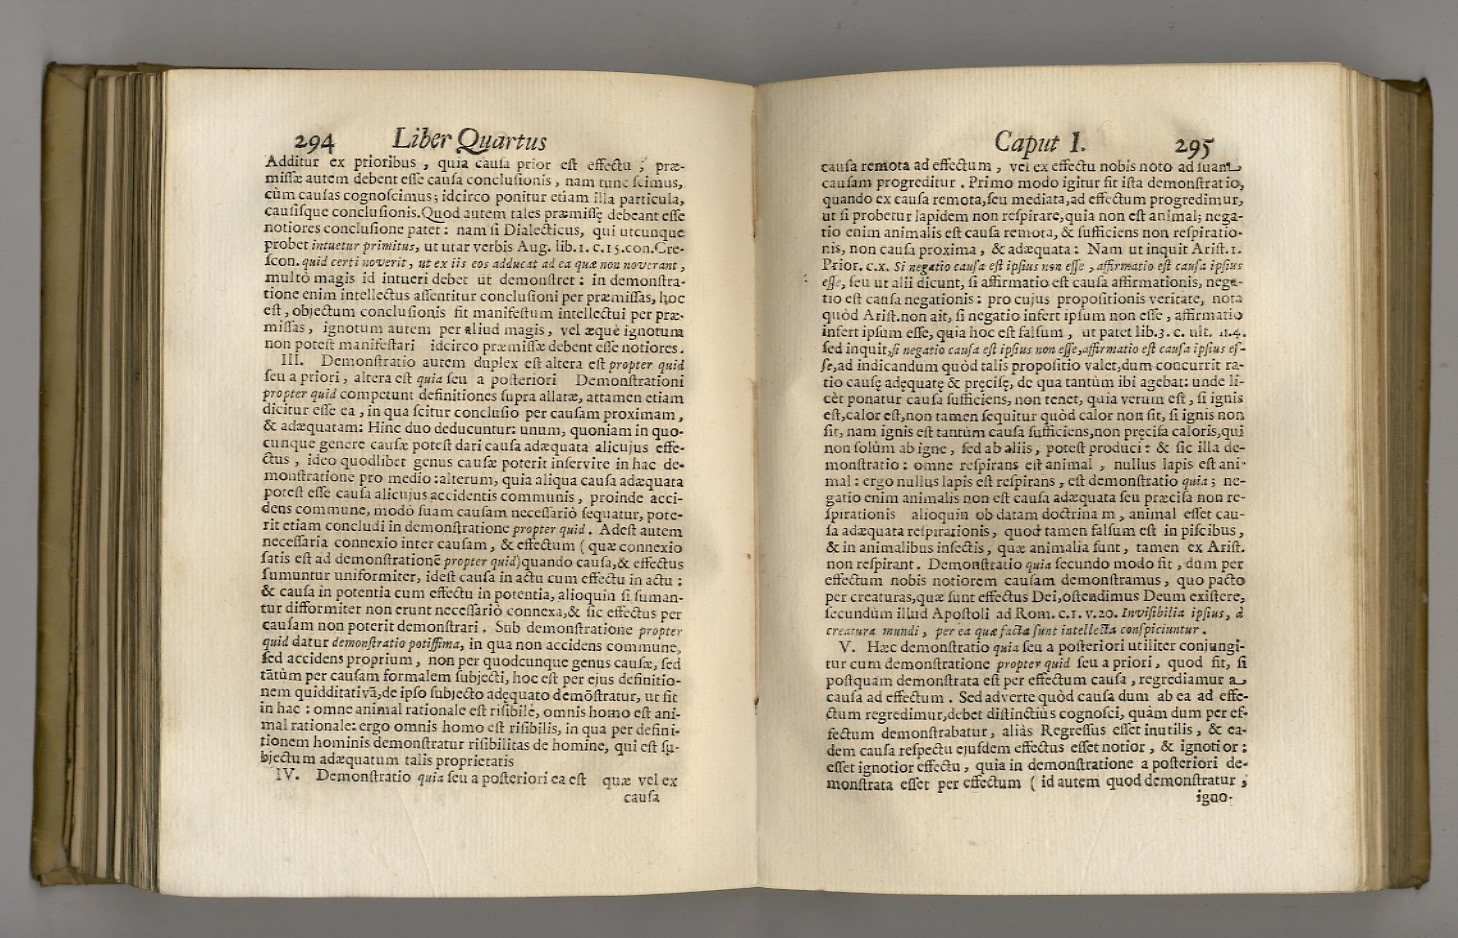 294 Liber Quartus
Additur ex prioribus , quia cauſa prior eſt effectu ; præ-
miſſæ autem debent eſſe cauſa concluſionis , nam tunc ſcimus,
cùm cauſas cognoſcimus; idcirco ponitur etiam illa particula,
cauſiſque concluſionis. Quod autem tales præmiſſę debeant eſſe
notiores concluſione patet : nam ſi Dialecticus, qui utcunque
probet intuetur primitus, ut utar verbis Aug. lib. 1. c. 15. con. Cre-
ſcon. quid certi noverit, ut ex iis eos adducat ad ea quæ non noverant ,
multò magis id intueri debet ut demonſtret : in demonſtra-
tione enim intellectus aſſentitur concluſioni per præmiſſas, hoc
eſt , objectum concluſionis fit manifeſtum intellectui per præ-
miſſas , ignotum autem per aliud magis , vel æquè ignotum
non poteſt manifeſtari idcirco præmiſſæ debent eſſe notiores .
III. Demonſtratio autem duplex eſt altera eſt propter quid
ſeu a priori , altera eſt quia ſeu a poſteriori Demonſtrationi
propter quid competunt definitiones ſupra allatæ, attamen etiam
dicitur eſſe ea , in qua ſcitur concluſio per cauſam proximam ,
& adæquatam: Hinc duo deducuntur: unum, quoniam in quo-
cunque genere cauſæ poteſt dari cauſa adæquata alicujus effe-
ctus , ideo quodlibet genus cauſæ poterit inſervire in hac de-
monſtratione pro medio : alterum, quia aliqua cauſa adæquata
poteſt eſſe cauſa alicujus accidentis communis , proinde acci-
dens commune, modò ſuam cauſam neceſſariò ſequatur, pote-
rit etiam concludi in demonſtratione propter quid . Adeſt autem
neceſſaria connexio inter cauſam , & effectum ( quæ connexio
ſatis eſt ad demonſtrationē propter quid) quando cauſa, & effectus
ſumuntur uniformiter, ideſt cauſa in actu cum effectu in actu :
& cauſa in potentia cum effectu in potentia, alioquin ſi ſuman-
tur difformiter non erunt neceſſariò connexa, & ſic effectus per
cauſam non poterit demonſtrari . Sub demonſtratione propter
quid datur demonſtratio potiſſima, in qua non accidens commune,
ſed accidens proprium , non per quodcunque genus cauſæ, ſed
tātùm per cauſam formalem ſubjecti, hoc eſt per ejus definitio-
nem quidditativā, de ipſo ſubjecto adęquato demōſtratur, ut ſit
in hac : omne animal rationale eſt riſibile, omnis homo eſt ani-
mal rationale: ergo omnis homo eſt riſibilis, in qua per defini-
tionem hominis demonſtratur riſibilitas de homine, qui eſt ſu-
bjectum adæquatum talis proprietatis
IV. Demonſtratio quia ſeu a poſteriori ea eſt quæ vel ex
cauſa
Caput I. 295
cauſa remota ad effectum , vel ex effectu nobis noto ad ſuam
cauſam progreditur . Primo modo igitur fit iſta demonſtratio,
quando ex cauſa remota, ſeu mediata, ad effectum progredimur,
ut ſi probetur lapidem non reſpirare, quia non eſt animal; nega-
tio enim animalis eſt cauſa remota, & ſufficiens non reſpiratio-
nis, non cauſa proxima , & adæquata : Nam ut inquit Ariſt. 1.
Prior. c. x. Si negatio cauſa eſt ipſius non eſſe , affirmatio eſt cauſa ipſius
eſſe, ſeu ut alii dicunt, ſi affirmatio eſt cauſa affirmationis, nega-
tio eſt cauſa negationis : pro cujus propoſitionis veritate, nota
quòd Ariſt. non ait, ſi negatio infert ipſum non eſſe , affirmatio
infert ipſum eſſe, quia hoc eſt falſum , ut patet lib. 3. c. ult. n. 4.
ſed inquit, ſi negatio cauſa eſt ipſius non eſſe, affirmatio eſt cauſa ipſius eſ-
ſe, ad indicandum quòd talis propoſitio valet, dum concurrit ra-
tio cauſę adęquatę & pręciſę, de qua tantùm ibi agebat: unde li-
cèt ponatur cauſa ſufficiens, non tenet, quia verum eſt , ſi ignis
eſt, calor eſt, non tamen ſequitur quòd calor non ſit, ſi ignis non
ſit, nam ignis eſt tantùm cauſa ſufficiens, non pręciſa caloris, qui
non ſolùm ab igne , ſed ab aliis , poteſt produci : & ſic illa de-
monſtratio : omne reſpirans eſt animal , nullus lapis eſt ani-
mal : ergo nullus lapis eſt reſpirans , eſt demonſtratio quia ; ne-
gatio enim animalis non eſt cauſa adæquata ſeu præciſa non re-
ſpirationis alioquin ob datam doctrina m , animal eſſet cau-
ſa adæquata reſpirationis, quod tamen falſum eſt in piſcibus,
& in animalibus inſectis, quæ animalia ſunt, tamen ex Ariſt.
non reſpirant. Demonſtratio quia ſecundo modo fit , dum per
effectum nobis notiorem cauſam demonſtramus , quo pacto
per creaturas, quæ ſunt effectus Dei, oſtendimus Deum exiſtere,
ſecundùm illud Apoſtoli ad Rom. c. 1. v. 20. Inviſibilia ipſius, à
creatura mundi , per ea quæ facta ſunt intellecta conſpiciuntur .
V. Hæc demonſtratio quia ſeu a poſteriori utiliter conjungi-
tur cum demonſtratione propter quid ſeu a priori , quod fit, ſi
poſtquam demonſtrata eſt per effectum cauſa , regrediamur a
cauſa ad effectum . Sed adverte quòd cauſa dum ab ea ad effe-
ctum regredimur, debet diſtinctiùs cognoſci, quàm dum per ef-
fectum demonſtrabatur , aliàs Regreſſus eſſet inutilis , & ea-
dem cauſa reſpectu ejuſdem effectus eſſet notior , & ignotior :
eſſet ignotior effectu , quia in demonſtratione a poſteriori de-
monſtrata eſſet per effectum ( id autem quod demonſtratur ,
igno-